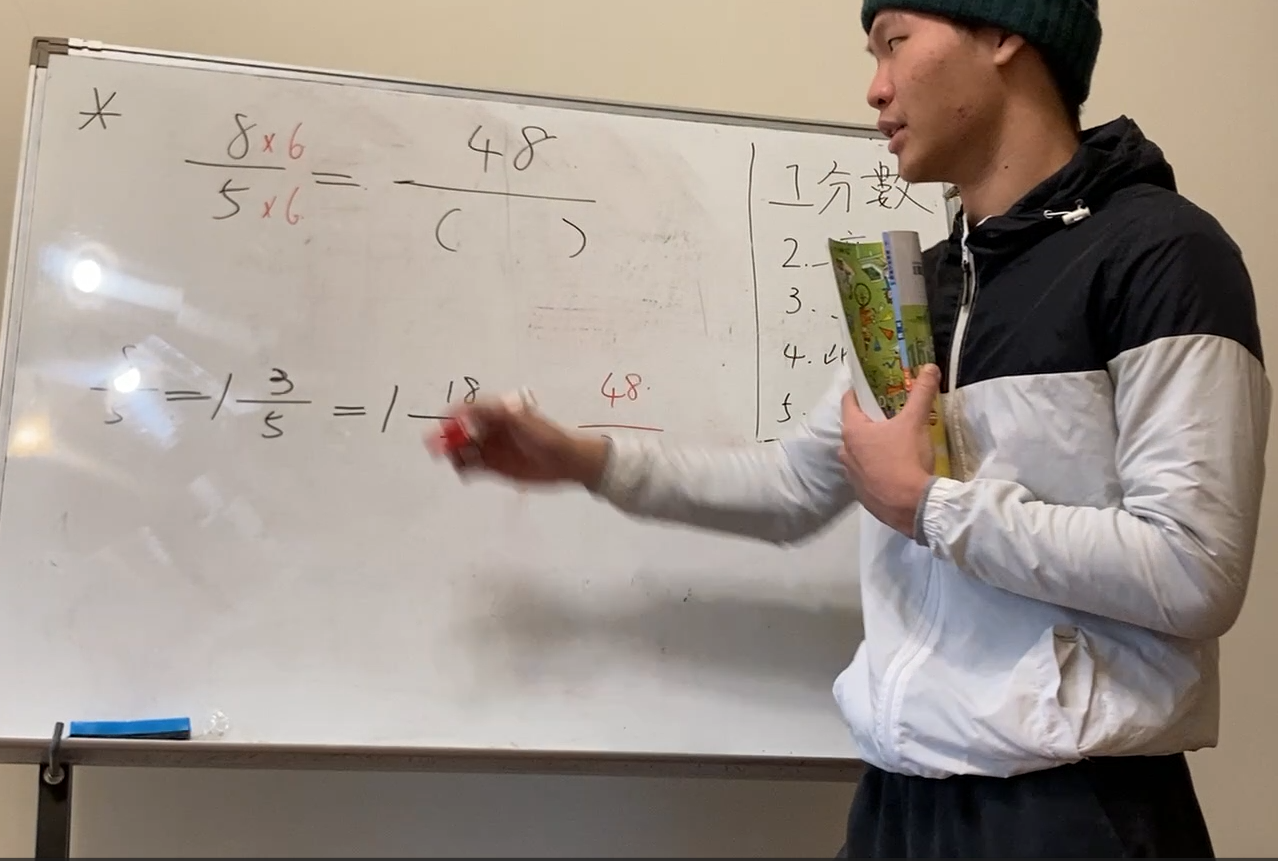 *
8×6 / 5×6 = 48 / ( )
= 1 3/5 = 1 18/ 48/
1 分數
2.
3.
4.
5.